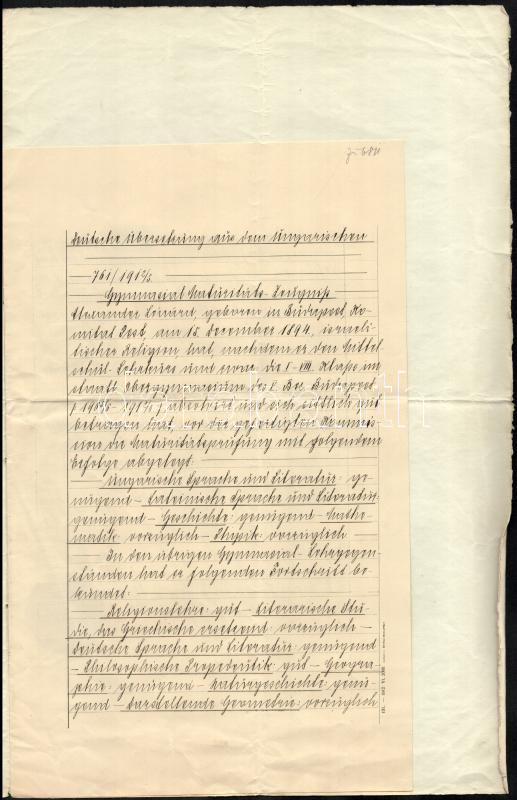 Deutsche Übersetzung aus dem Ungarischen
761/191
Gymnasial Maturitäts-Zeugniß
Alexander Lénárd, geboren in Budapest, Ko-
mitat Pest, am 15. Dezember 1894, israeli-
tischer Religion hat, nachdem er den Mittel
schul-Lehrkurs und zwar die I-VIII Klasse im
staatl. Obergymnasium des Bez. Budapest
und sich sittlich gut
betragen hat, vor der gefertigten Kommis-
sion die Maturitätsprüfung mit folgendem
Erfolge abgelegt:
Ungarische Sprache und Literatur: ge-
nügend – Lateinische Sprache und Literatur:
genügend – Geschichte: genügend – Mathe-
matik: vorzüglich – Physik: vorzüglich
In den übrigen Gymnasial-Lehrgegen-
ständen hat er folgenden Fortschritt be-
kundet:
Religionslehre: gut – Literarische Stu-
die, das Griechische ersetzend: vorzüglich –
Deutsche Sprache und Literatur: genügend
– Philosophische Propedeutik: gut – Geogra-
phie: genügend – Naturgeschichte: genü-
gend – Darstellende Geometrie: vorzüglich